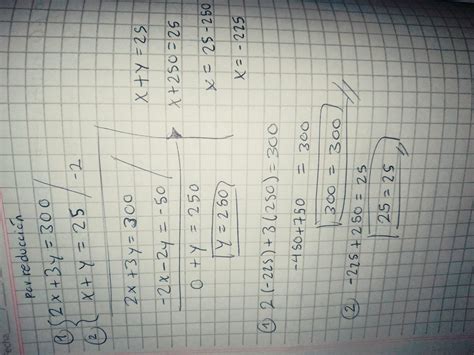 Por reducción
① { 2x + 3y = 300
② { x + y = 25 / -2
2x + 3y = 300
-2x - 2y = -50
0 + y = 250
y = 250
x + y = 25
x + 250 = 25
x = 25 - 250
x = -225
① 2(-225) + 3(250) = 300
-450 + 750 = 300
300 = 300
② -225 + 250 = 25
25 = 25